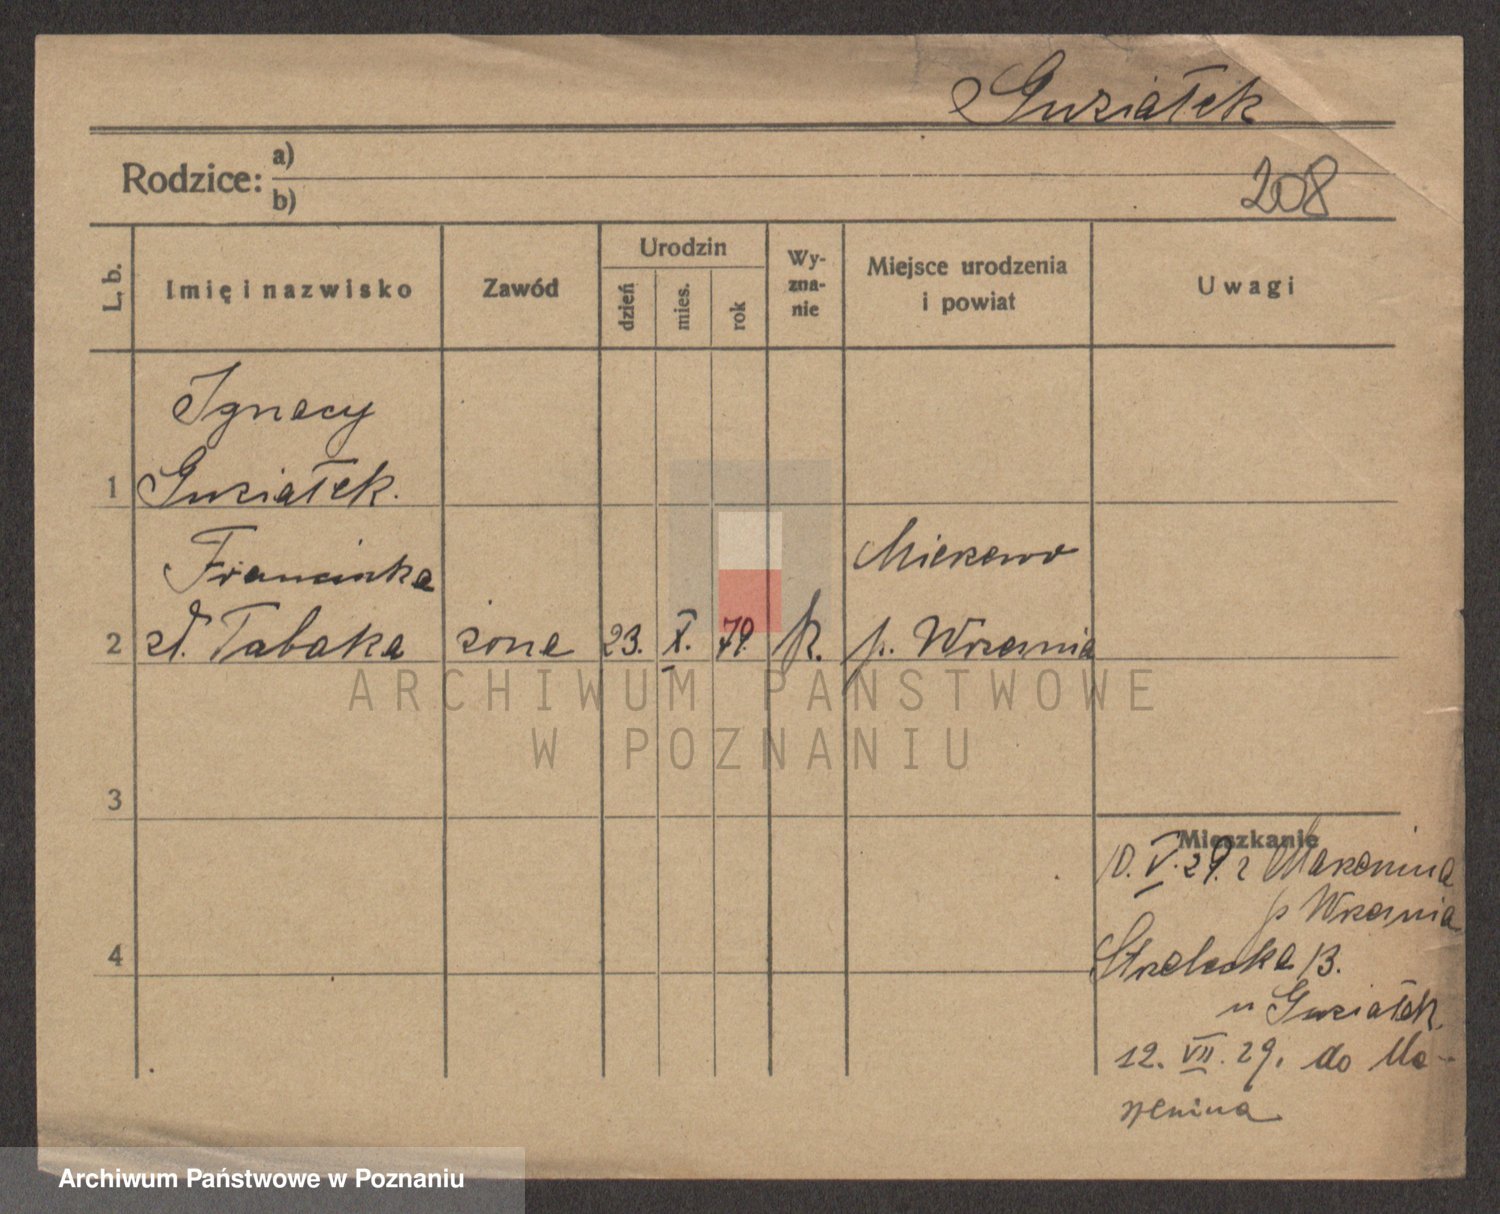 Guziałek
Rodzice: a)
b)
208
L. b.
Imię i nazwisko
Zawód
Urodzin
dzień
mies.
rok
Wy-
zna-
nie
Miejsce urodzenia
i powiat
Uwagi
Ignacy
1 Guziałek.
Franciszka
2 zd. Tabaka żona 23. X. 79. k.
p. Września
3
4
Mieszkanie
10. V. 29. z
p Września
Strzelecka 13.
u Guziałek
12. VII. 29. do
ARCHIWUM PAŃSTWOWE
W POZNANIU
Archiwum Państwowe w Poznaniu